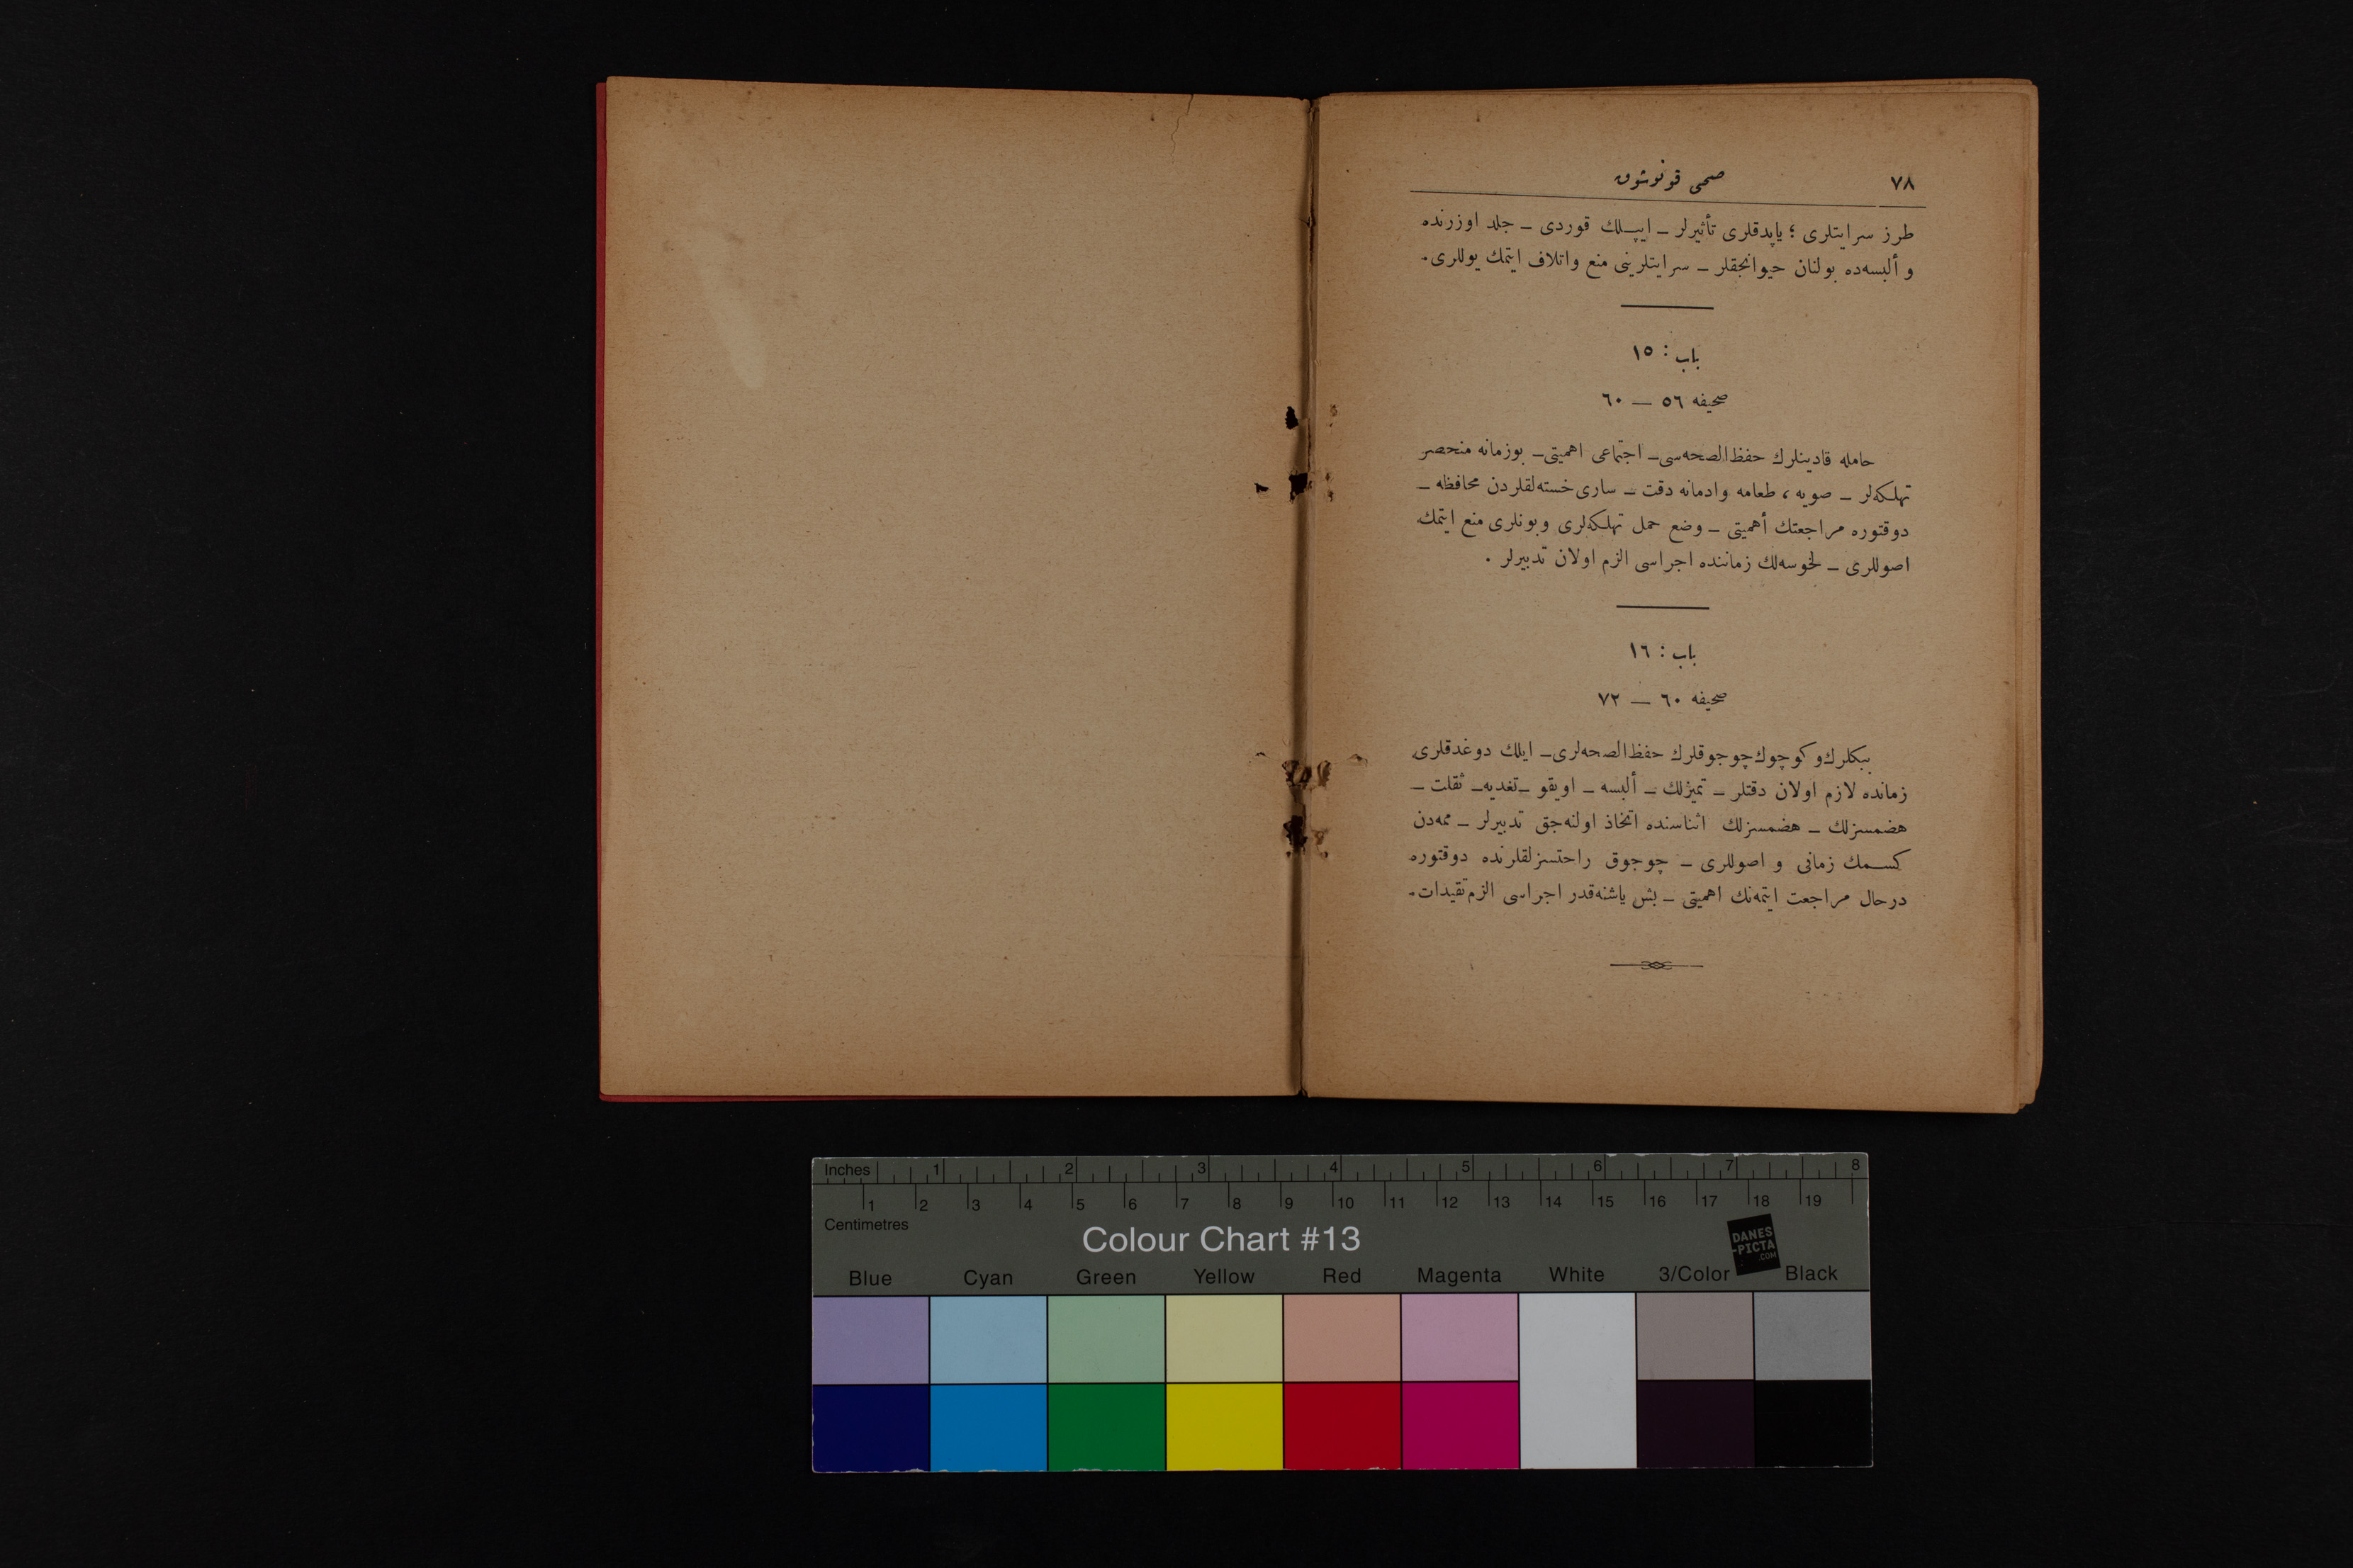 ٧٨
صحی قونوشوق
طرز سرایتلری ؛ یاپدقلری تأثیرلر ـ ایپـلك قوردی ـ جلد اوزرنده
و ألبسه‌ده بولنان حیوانجقلر ـ سرایتلرینی منع واتلاف ایتمك یوللری.
باب : ١٥
صحیفه ٥٦ — ٦٠
حامله قادینلرك حفظ‌الصحه‌سی ـ اجتماعی اهمیتی ـ بوزمانه منحصر
تهلكه‌لر ـ صویه ، طعامه وادمانه دقت ـ ساری خسته‌لقلردن محافظه ـ
دوقتوره مراجعتك أهمیتی ـ وضع حمل تهلكه‌لری وبونلری منع ایتمك
اصوللری ـ لخوسه‌لك زماننده اجراسی الزم اولان تدبیرلر .
باب : ١٦
صحیفه ٦٠ — ٧٢
ببكلرك و كوچوك چوجوقلرك حفظ‌الصحه‌لری ـ ایلك دوغدقلری
زمانده لازم اولان دقتلر ـ تمیزلك ـ ألبسه ـ اویقو ـ تغدیه ـ ثقلت ـ
هضمسزلك ـ هضمسزلك اثناسنده اتخاذ اولنه‌جق تدبیرلر ـ ممه‌دن
كســمك زمانی و اصوللری ـ چوجوق راحتسزلقلرنده دوقتوره
درحال مراجعت ایتمه‌نك اهمیتی ـ بش یاشنه‌قدر اجراسی الزم تقیدات.
Inches 1 2 3 4 5 6 7 8
1 2 3 4 5 6 7 8 9 10 11 12 13 14 15 16 17 18 19
Centimetres
Colour Chart #13
DANES
-PICTA
.COM
Blue Cyan Green Yellow Red Magenta White 3/Color Black